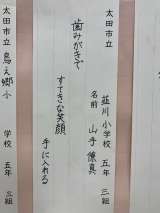 太田市立
韮川小学校 五年 三組
名前 山手 僚真
歯みがきで
すてきな笑顔
手に入れる
太田市立 鳥之郷小 学校 五年 三組